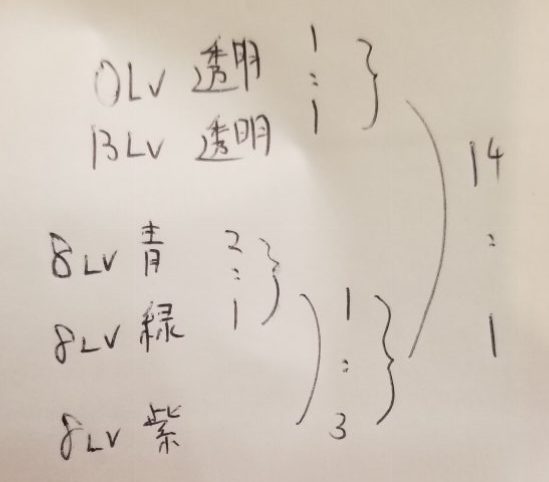 0LV 透明 1
:
13LV 透明 1
14
:
1
8LV 青 2
:
8LV 緑 1
1
:
8LV 紫 3